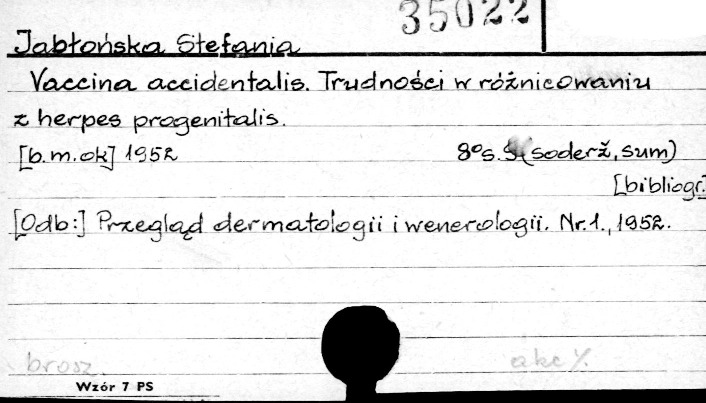 35022
Jabłońska Stefania
Vaccina accidentalis. Trudności w różnicowaniu
z herpes progenitalis.
[b.m.ok] 1952 8°s. (soderż, sum)
[bibliogr.]
[Odb:] Przegląd dermatologii i wenerologii. Nr.1., 1952.
brosz. akc
Wzór 7 PS